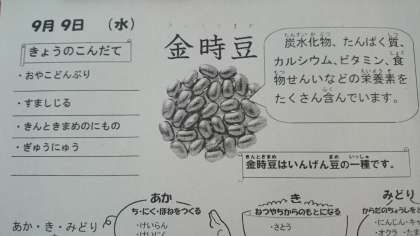 9月9日 (水)
きょうのこんだて
・おやこどんぶり
・すましじる
・きんときまめのにもの
・ぎゅうにゅう
金時豆
炭水化物、たんぱく質、
カルシウム、ビタミン、食
物せんいなどの栄養素を
たくさん含んでいます。
金時豆はいんげん豆の一種です。
あか・き・みどり
あか
ち・にく・ほねをつくる
・けいらん
き
ねつやちからのもとになる
・さとう
みどり
からだのちょうしをと
・にんじん・キャ